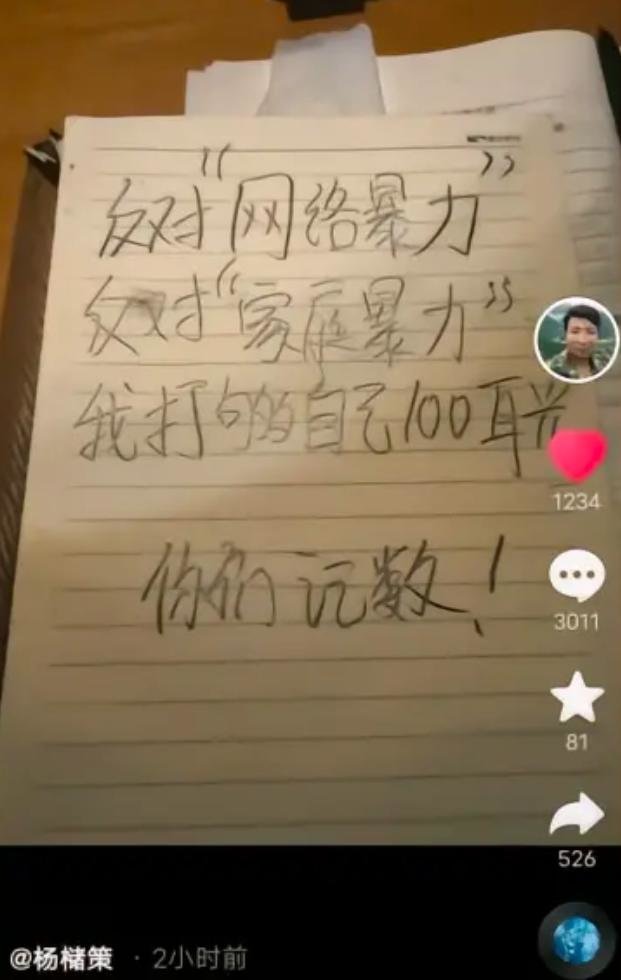 反对“网络暴力”
反对“家庭暴力”
我打够自己100耳光
你们记数！
1234
3011
81
526
@杨槠策 · 2小时前